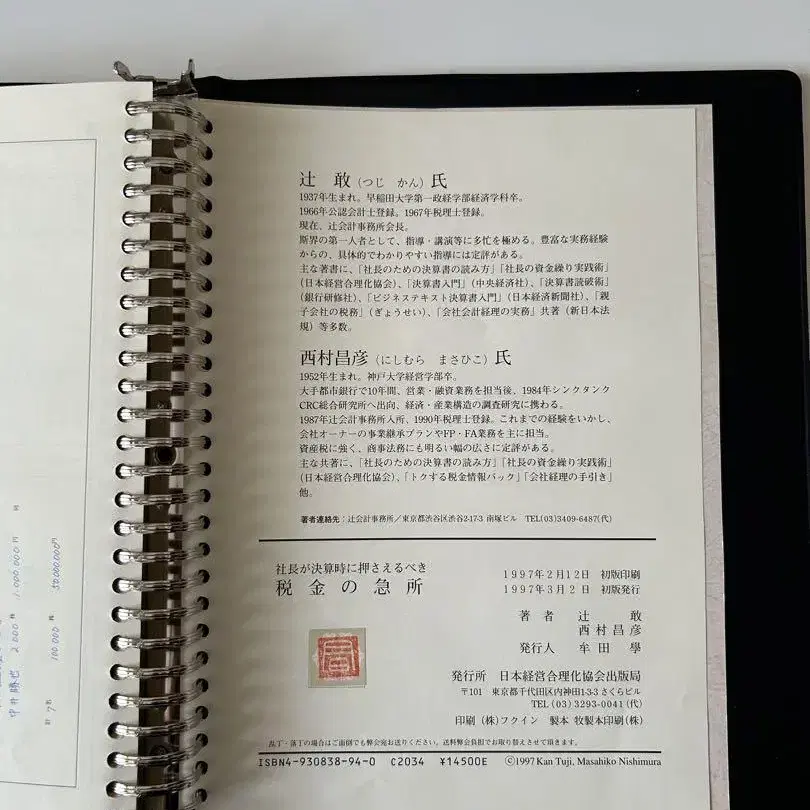 辻 敢（つじ かん）氏
1937年生まれ。早稲田大学第一政経学部経済学科卒。
1966年公認会計士登録。1967年税理士登録。
現在、辻会計事務所会長。
斯界の第一人者として、指導・講演等に多忙を極める。豊富な実務経験
からの、具体的でわかりやすい指導には定評がある。
主な著書に、「社長のための決算書の読み方」「社長の資金繰り実践術」
（日本経営合理化協会）、「決算書入門」（中央経済社）、「決算書読破術」
（銀行研修社）、「ビジネステキスト決算書入門」（日本経済新聞社）、「親
子会社の税務」（ぎょうせい）、「会社会計経理の実務」共著（新日本法
規）等多数。
西村昌彦（にしむら まさひこ）氏
1952年生まれ。神戸大学経営学部卒。
大手都市銀行で10年間、営業・融資業務を担当後、1984年シンクタンク
CRC総合研究所へ出向、経済・産業構造の調査研究に携わる。
1987年辻会計事務所入所、1990年税理士登録。これまでの経験をいかし、
会社オーナーの事業継承プランやFP・FA業務を主に担当。
資産税に強く、商事法務にも明るい幅の広さに定評がある。
主な共著に、「社長のための決算書の読み方」「社長の資金繰り実践術」
（日本経営合理化協会）、「トクする税金情報パック」「会社経理の手引き」
他。
著者連絡先：辻会計事務所／東京都渋谷区渋谷2-17-3 南塚ビル TEL(03)3409-6487(代)
社長が決算時に押さえるべき
税金の急所
1997年2月12日 初版印刷
1997年3月2日 初版発行
著者 辻 敢
西村昌彦
発行人 牟田 學
発行所 日本経営合理化協会出版局
〒101 東京都千代田区内神田1-3-3 さくらビル
TEL(03)3293-0041(代)
印刷（株）フクイン 製本 牧製本印刷（株）
乱丁・落丁の場合はご面倒でも弊会宛お送りください。送料弊会負担でお取り替えさせて頂きます。
ISBN4-930838-94-0 C2034 ¥14500E ©1997 Kan Tuji, Masahiko Nishimura
2,000株 1,000,000円
100,000株 50,000,000円